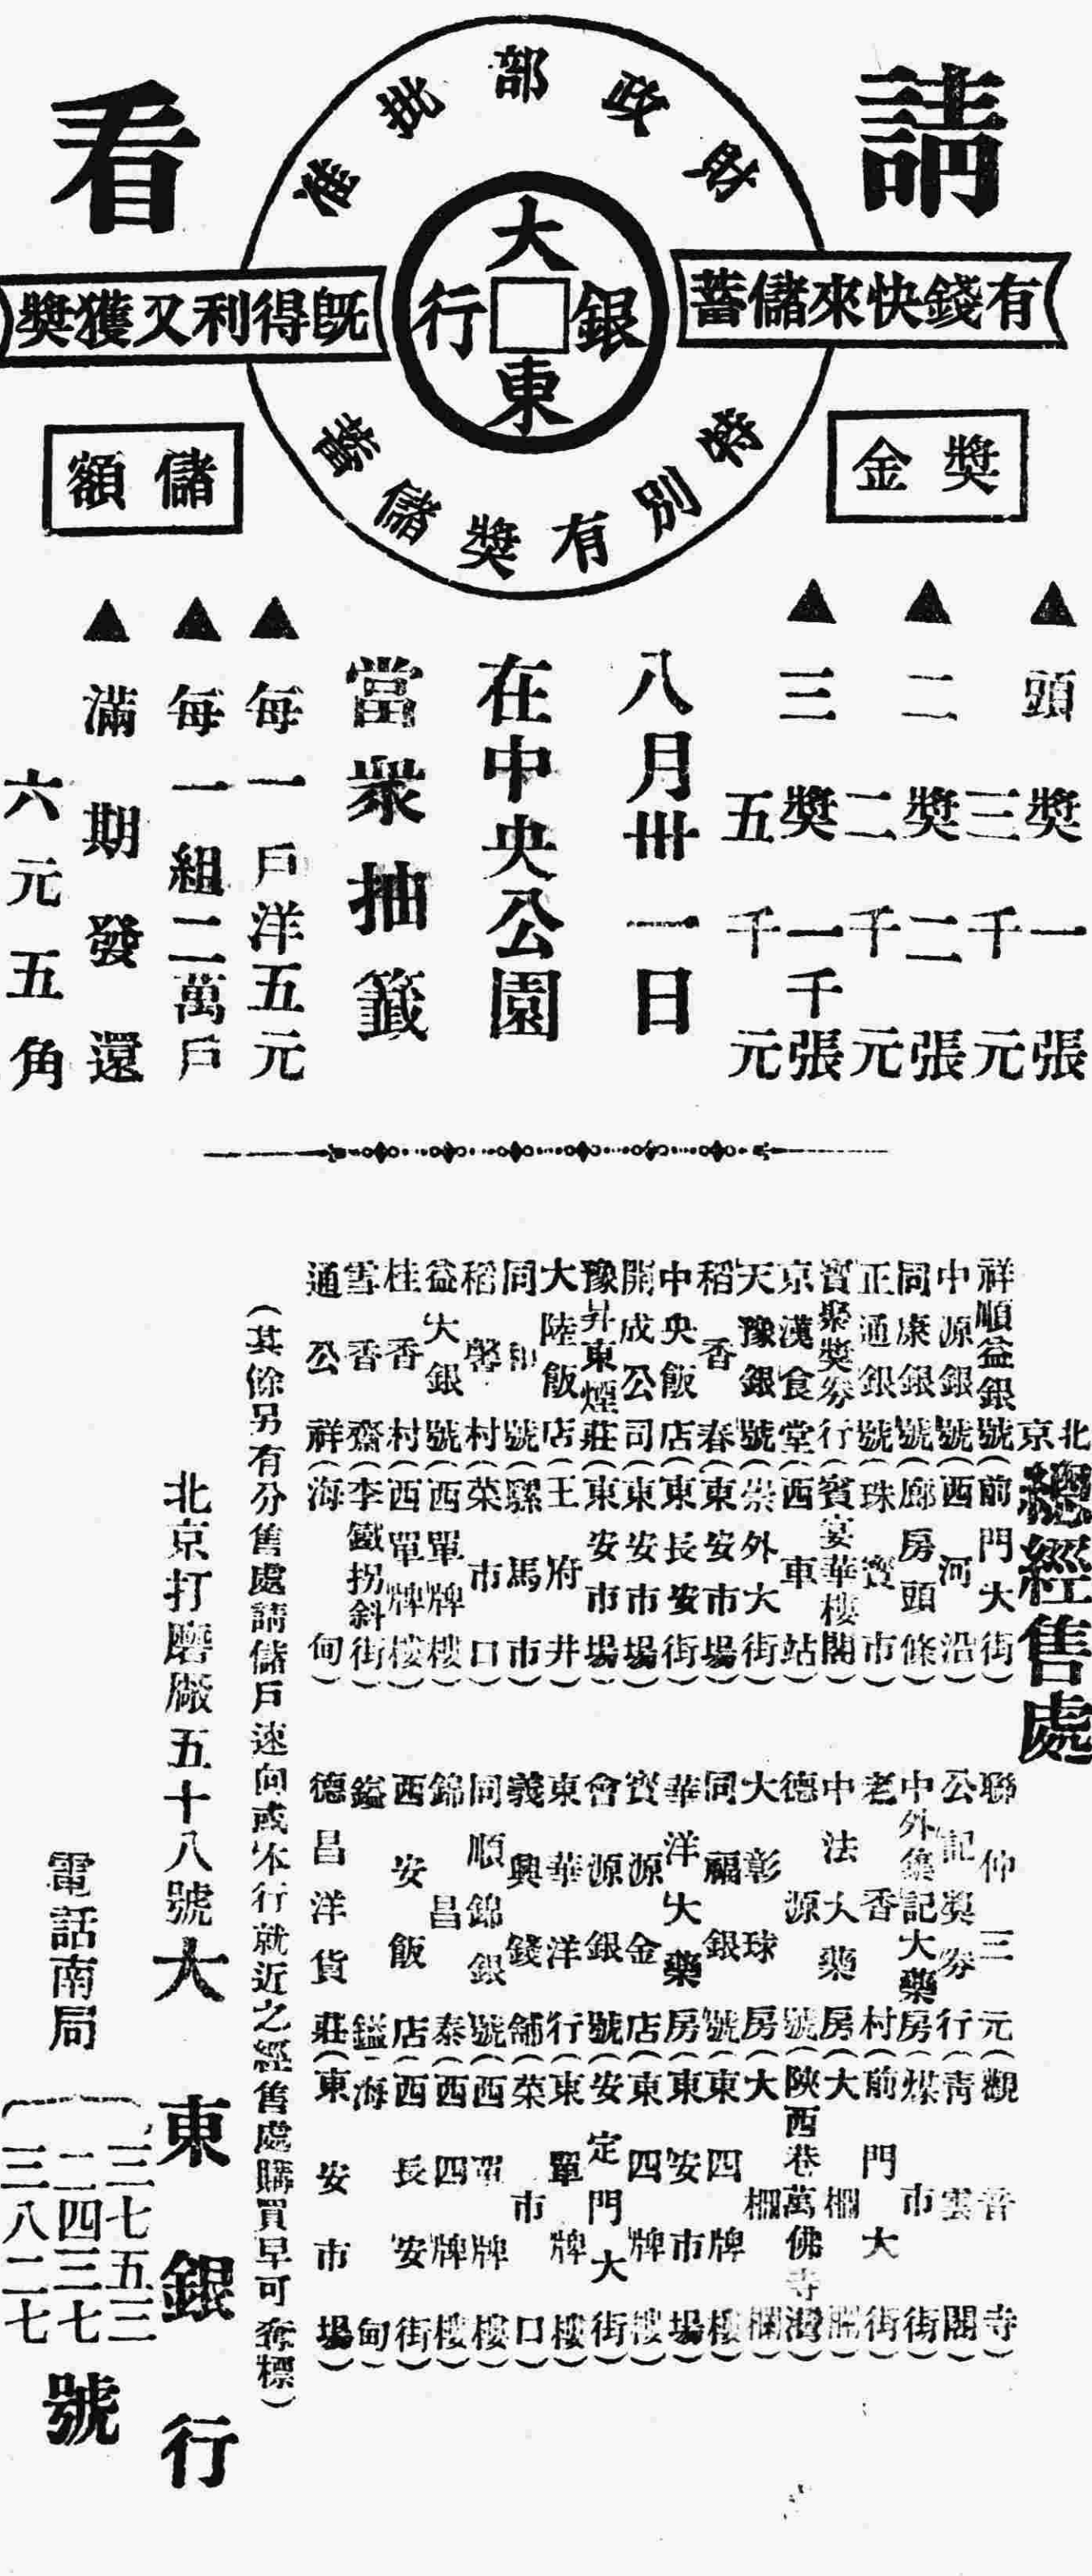 請看
財政部批准
大東銀行
特別有獎儲蓄
有錢快來儲蓄
既得利又獲獎
獎金
▲頭獎一張
三千元
▲二獎二張
二千元
▲三獎一千張
五千元
八月卅一日
在中央公園
當衆抽籤
儲額
▲每一戶洋五元
▲每一組二萬戶
▲滿期發還
六元五角
北京總經售處
祥順益銀號(前門大街)
中源銀號(西河沿)
同康銀號(廊房頭條)
正通銀號(珠寶市)
寶聚獎券行(賓宴華樓閣)
京漢食堂(西車站)
天豫銀號(崇外大街)
稻香春(東安市場)
中央飯店(東長安街)
開成公司(東安市場)
豫昇東煙莊(東安市場)
大陸飯店(王府井)
同和號(騾馬市)
稻馨村(菜市口)
益大銀號(西單牌樓)
桂香村(西單牌樓)
雪香齋(李鐵拐斜街)
通公祥(海甸)
聯仲三元(觀音寺)
公記獎券行(青雲閣)
中外集記大藥房(煤市街)
老香村(前門大街)
中法大藥房(大柵欄)
德源號(陝西巷萬佛寺灣)
大彰球房(大柵欄)
同福銀號(東四牌樓)
華洋大藥房(東安市場)
寶源金店(東四牌樓)
會源銀號(安定門大街)
東華洋行(東單牌樓)
義興錢舖(菜市口)
同順錦銀號(西單牌樓)
錦昌泰(西四牌樓)
西安飯店(西長安街)
鎰鎰(海甸)
德昌洋貨莊(東安市場)
(其餘另有分售處請儲戶速向或本行就近之經售處購買早可奪標)
北京打磨廠五十八號大東銀行
電話南局
三七五三
二四三七
三八二七
號